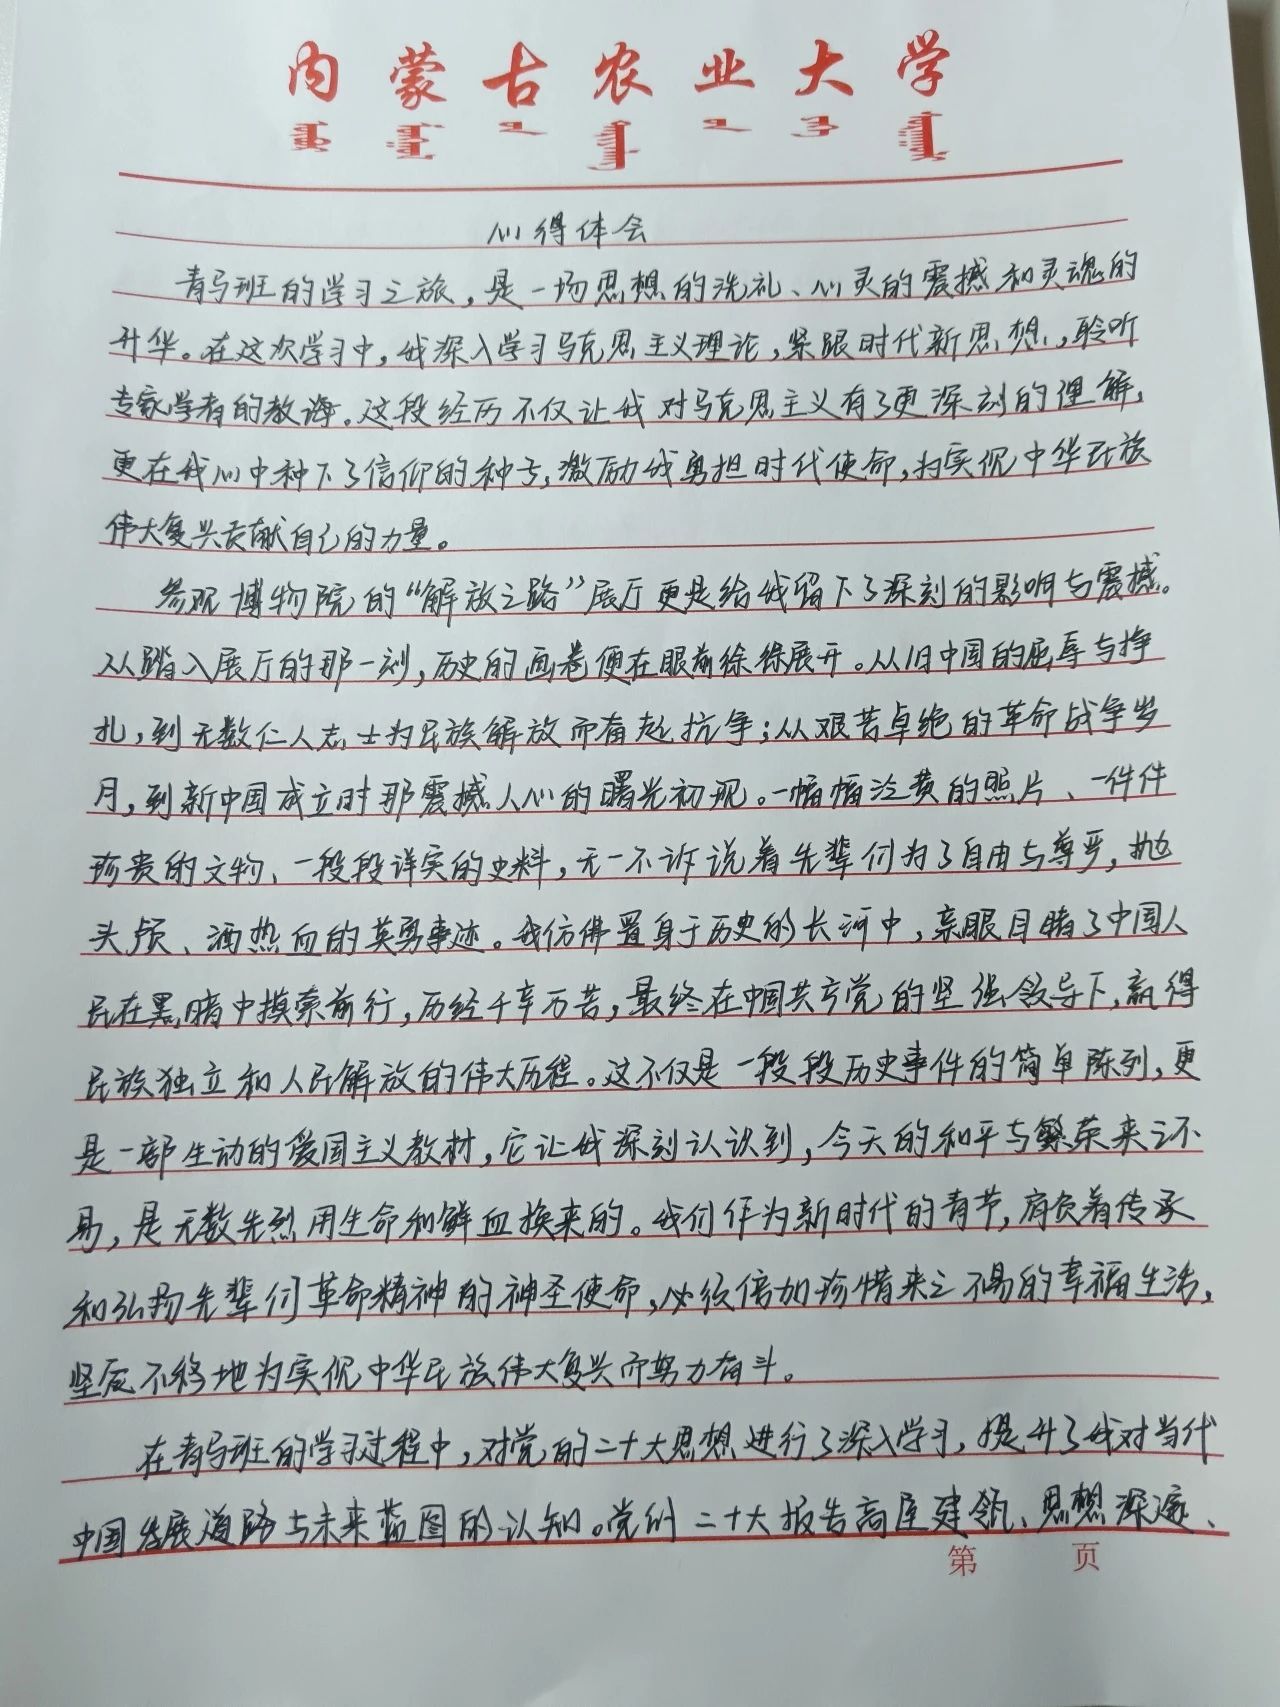 内蒙古农业大学
心得体会
青马班的学习之旅，是一场思想的洗礼、心灵的震撼和灵魂的
升华。在这次学习中，我深入学习马克思主义理论，紧跟时代新思想，聆听
专家学者的教诲。这段经历不仅让我对马克思主义有了更深刻的理解，
更在我心中种下了信仰的种子，激励我勇担时代使命，为实现中华民族
伟大复兴贡献自己的力量。
参观博物院的“解放之路”展厅更是给我留下了深刻的影响与震撼。
从踏入展厅的那一刻，历史的画卷便在眼前徐徐展开。从旧中国的屈辱与挣
扎，到无数仁人志士为民族解放而奋起抗争；从艰苦卓绝的革命战争岁
月，到新中国成立时那震撼人心的曙光初现。一幅幅泛黄的照片、一件件
珍贵的文物、一段段详实的史料，无一不诉说着先辈们为了自由与尊严，抛
头颅、洒热血的英勇事迹。我仿佛置身于历史的长河中，亲眼目睹了中国人
民在黑暗中摸索前行，历经千辛万苦，最终在中国共产党的坚强领导下，赢得
民族独立和人民解放的伟大历程。这不仅是一段段历史事件的简单陈列，更
是一部生动的爱国主义教材，它让我深刻认识到，今天的和平与繁荣来之不
易，是无数先烈用生命和鲜血换来的。我们作为新时代的青节，肩负着传承
和弘扬先辈们革命精神的神圣使命，必须倍加珍惜来之不易的幸福生活，
坚定不移地为实现中华民族伟大复兴而努力奋斗。
在青马班的学习过程中，对党的二十大思想进行了深入学习，提升了我对当代
中国发展道路与未来蓝图的认知。党的二十大报告高屋建瓴、思想深邃、
第 页